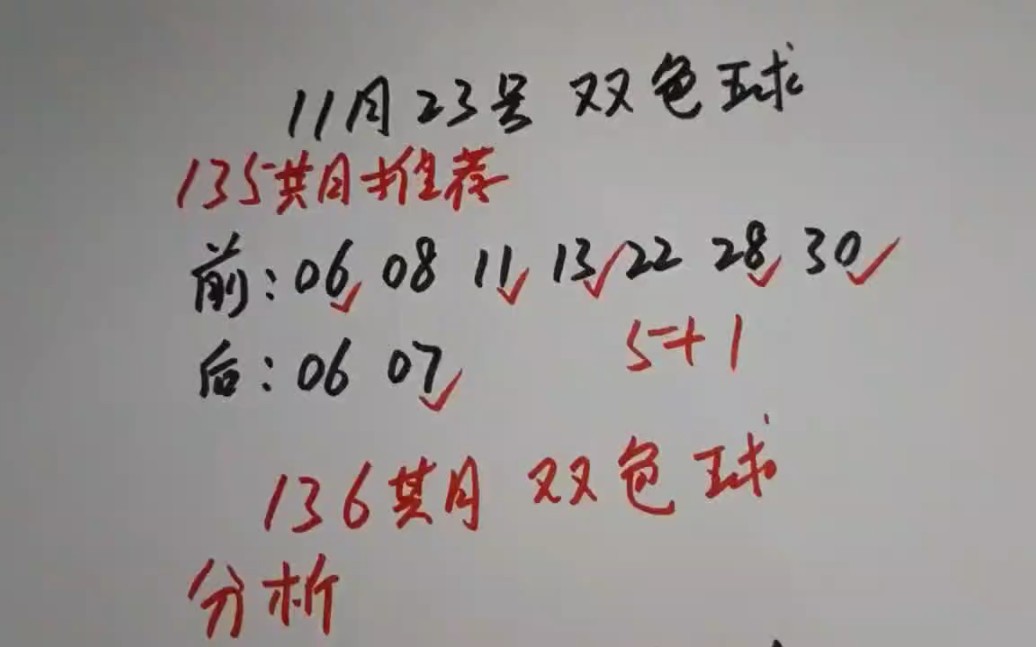 11月23号 双色球
135期推荐
前:06 08 11 13 22 28 30
5+1
后:06 07
136期 双色球
分析